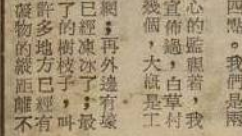 四點。我們是兩
心的監視着，我
宣佈過，白草村
幾個，大概是工
網；再外邊有壕
已經凍冰了；最
了的樹枝子，叫
許多地方已經有
礙物的縱距離不